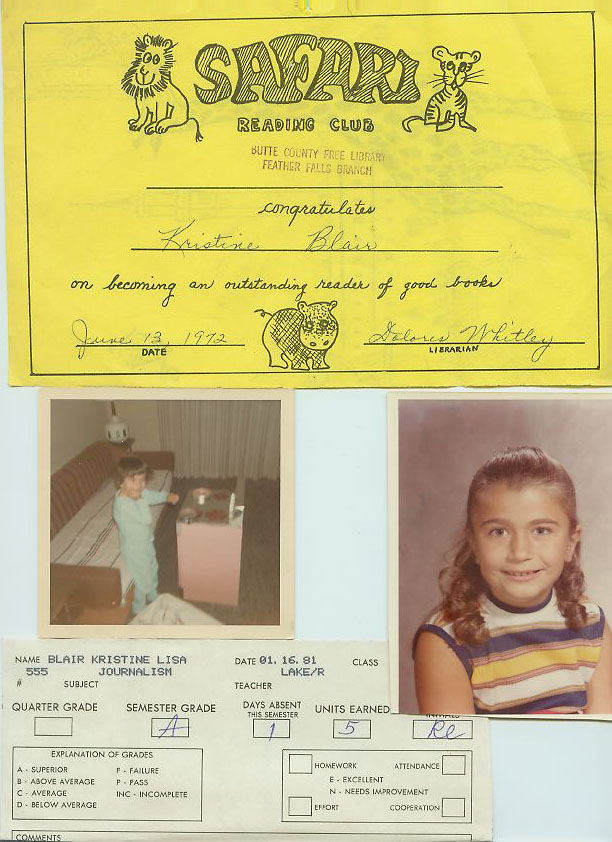 SAFARI
READING CLUB
BUTTE COUNTY FREE LIBRARY
FEATHER FALLS BRANCH
congratulates
Kristine Blair
on becoming an outstanding reader of good books
June 13, 1972 Dolores Whitley
DATE LIBRARIAN
NAME BLAIR KRISTINE LISA DATE 01.16.81 CLASS
555 JOURNALISM LAKE/R
# SUBJECT TEACHER
QUARTER GRADE SEMESTER GRADE DAYS ABSENT THIS SEMESTER UNITS EARNED INITIALS
A 1 5
EXPLANATION OF GRADES
A - SUPERIOR F - FAILURE
B - ABOVE AVERAGE P - PASS
C - AVERAGE INC - INCOMPLETE
D - BELOW AVERAGE
HOMEWORK ATTENDANCE
E - EXCELLENT
N - NEEDS IMPROVEMENT
EFFORT COOPERATION
COMMENTS